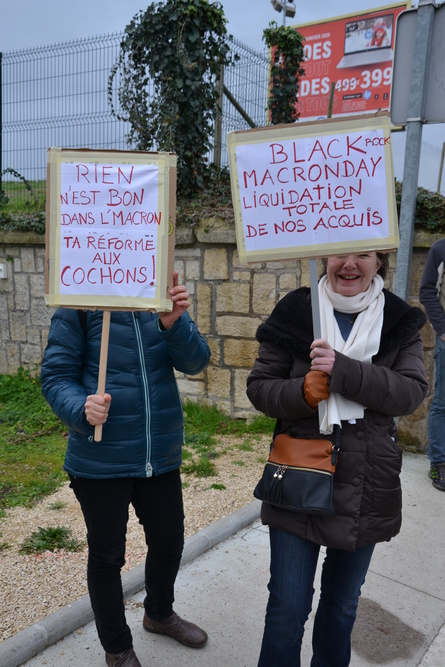 RIEN
N'EST BON
DANS L'MACRON
TA RÉFORME
AUX
COCHONS!
BLACK ROCK
MACRONDAY
LIQUIDATION
TOTALE
DE NOS ACQUIS
DES
499€ 399